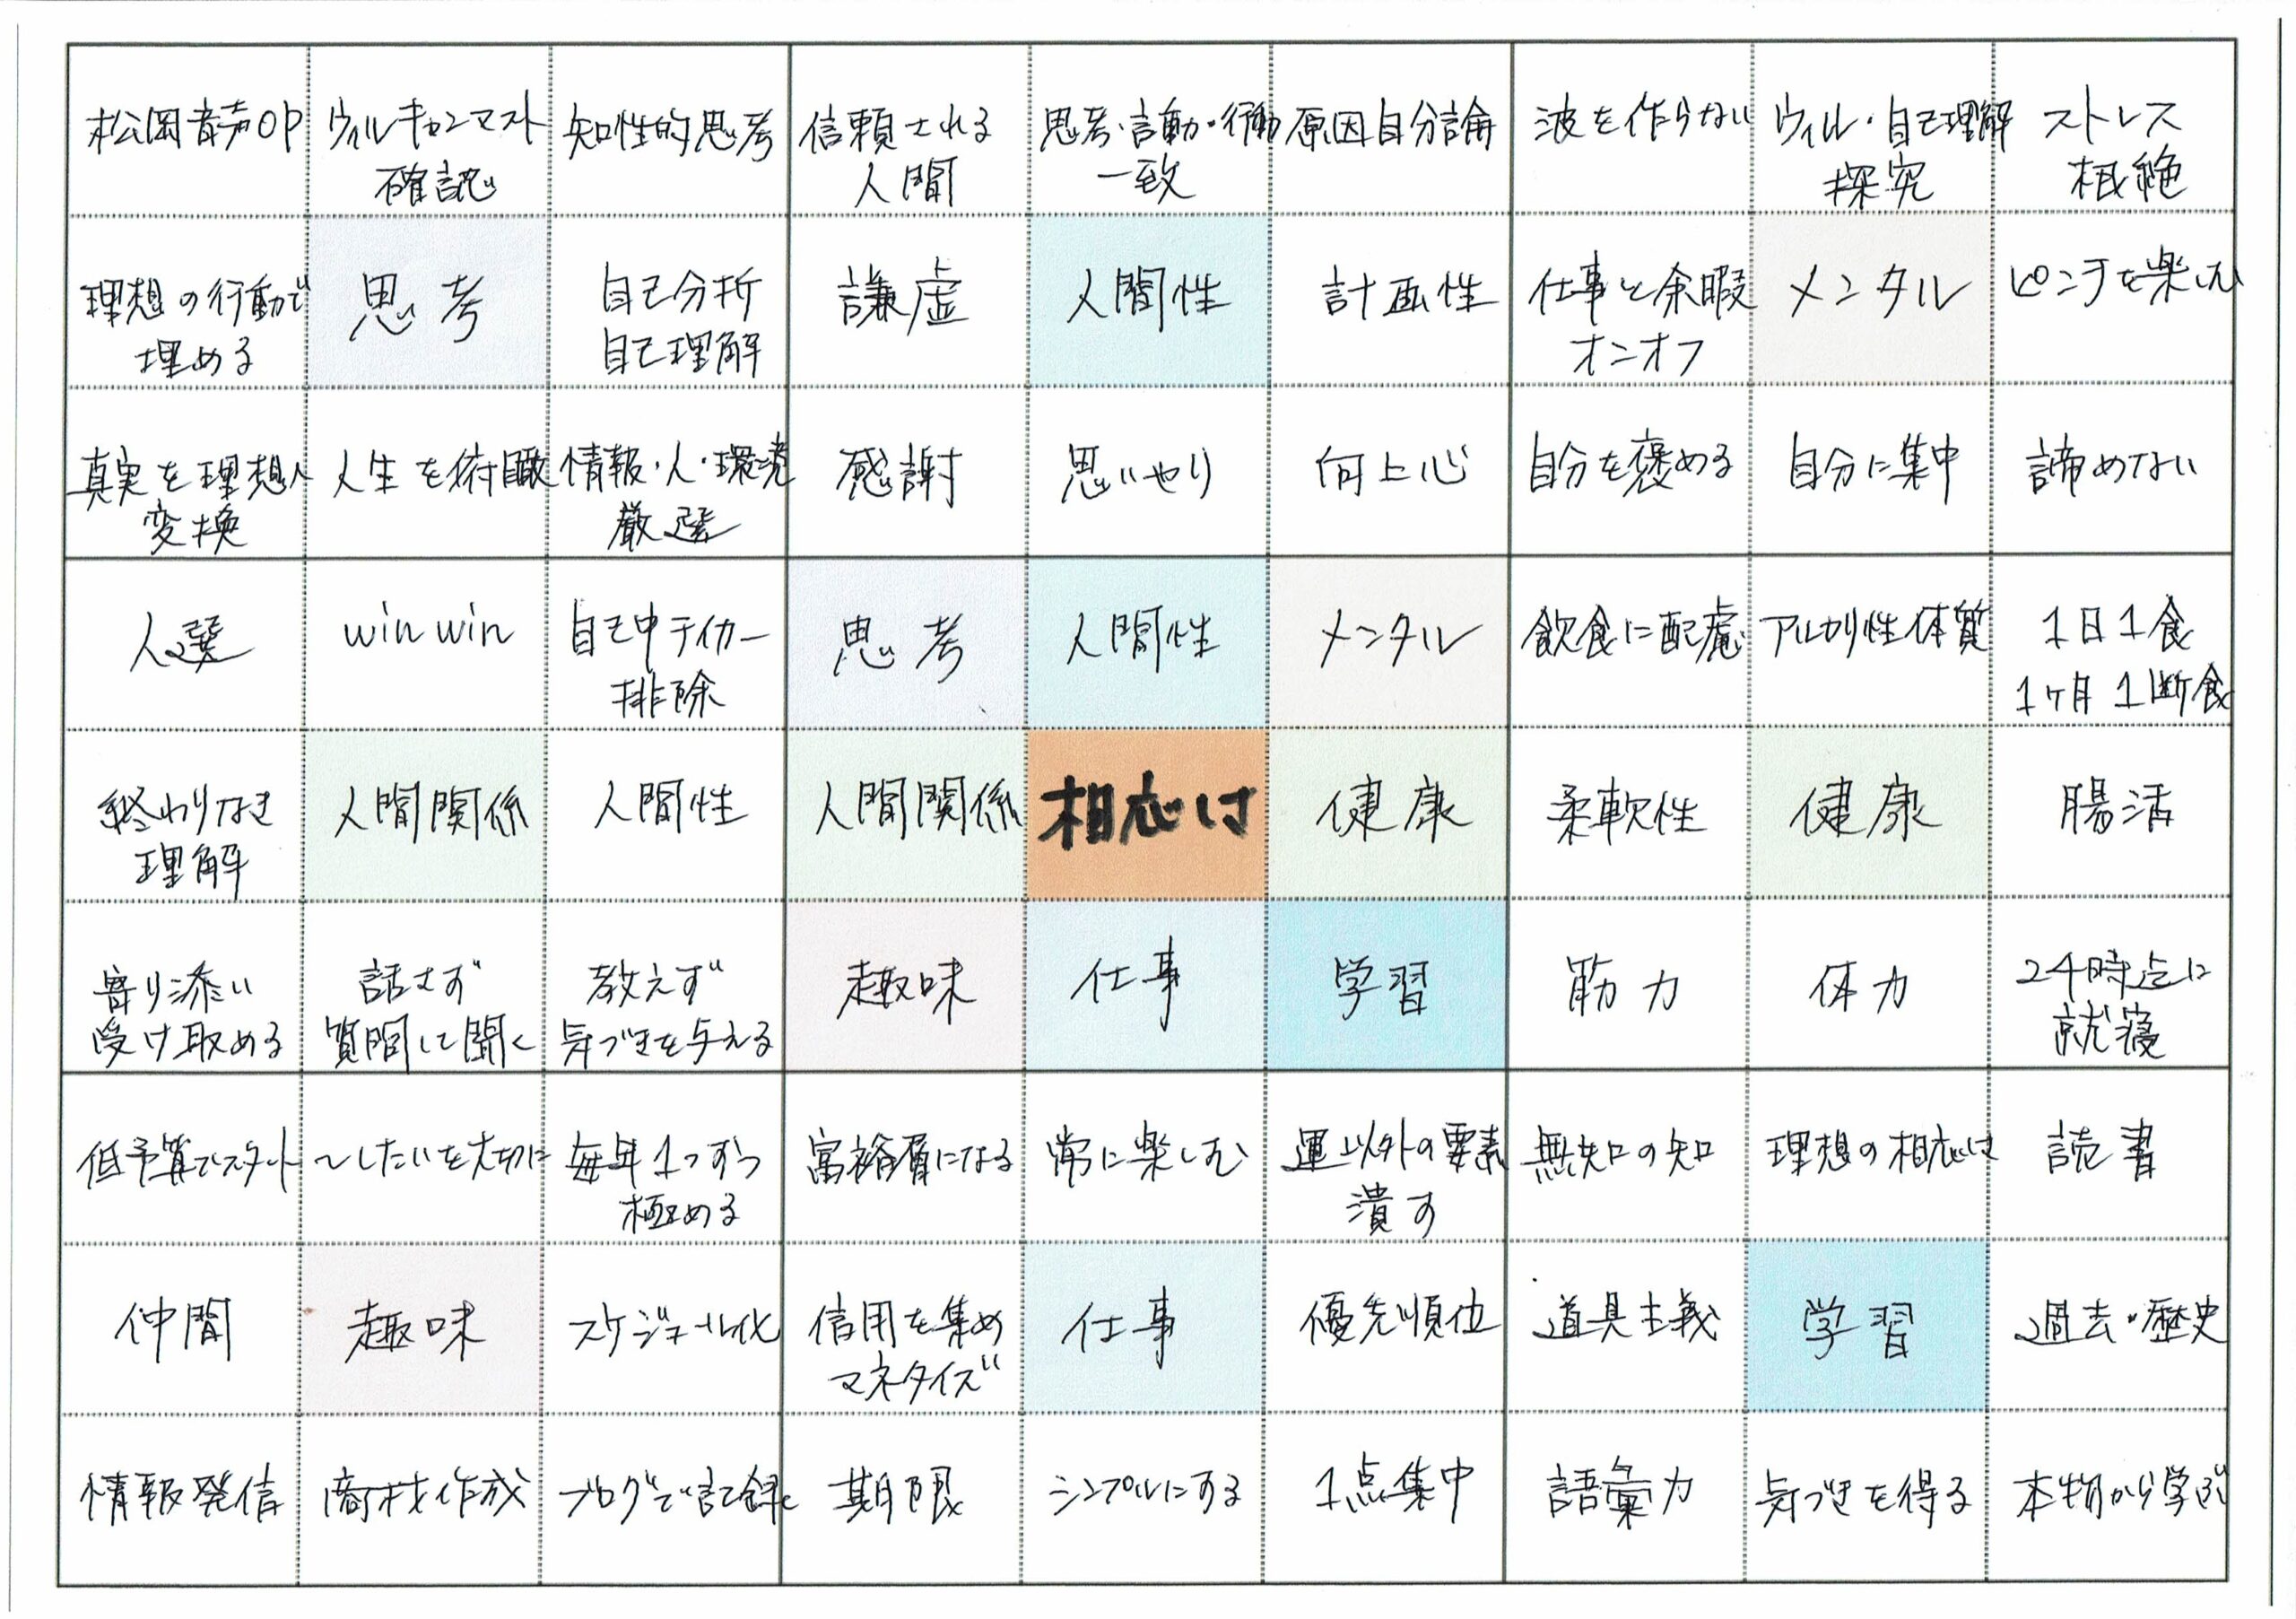 松岡音声OP ウィルキャンマスト 知性的思考 信頼される 思考・言動・行動 原因自分論 波を作らない ウィル・自己理解 ストレス
確認 人間 一致 探究 根絶
理想の行動で 思考 自己分析 謙虚 人間性 計画性 仕事と余暇 メンタル ピンチを楽しむ
埋める 自己理解 オンオフ
真実を理想へ 人生を俯瞰 情報・人・環境 感謝 思いやり 向上心 自分を褒める 自分に集中 諦めない
変換 厳選
人選 winwin 自己中テイカー 思考 人間性 メンタル 飲食に配慮 アルカリ性体質 1日1食
排除 1ヶ月1断食
終わりなき 人間関係 人間性 人間関係 相応は 健康 柔軟性 健康 腸活
理解
寄り添い 話さず 教えず 趣味 仕事 学習 筋力 体力 24時迄に
受け取める 質問して聞く 気づきを与える 就寝
低予算でスタート 〜したいを大切に 毎年1つずつ 富裕層になる 常に楽しむ 運以外の要素 無知の知 理想の相応は 読書
極める 潰す
仲間 趣味 スケジュール化 信用を集め 仕事 優先順位 道具主義 学習 過去・歴史
マネタイズ
情報発信 商材作成 ブログで記録 期限 シンプルにする 1点集中 語彙力 気づきを得る 本物から学ぶ